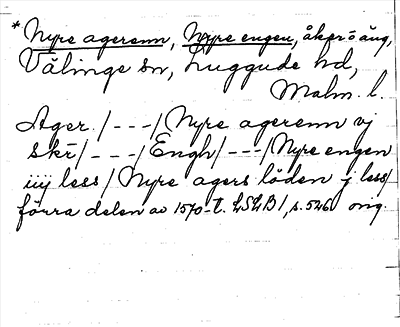 * Nyre agerenn, Nyre engen, åkrar o äng,
Välinge sn, Luggude hd,
Malm. l.
Ager. /---/ Nyre agerenn vj
skr /---/ Engh /---/ Nyre engen
iiij less / Nyre agers löden j less /
förra delen av 1570-t. LSLB 1, s. 526 orig.